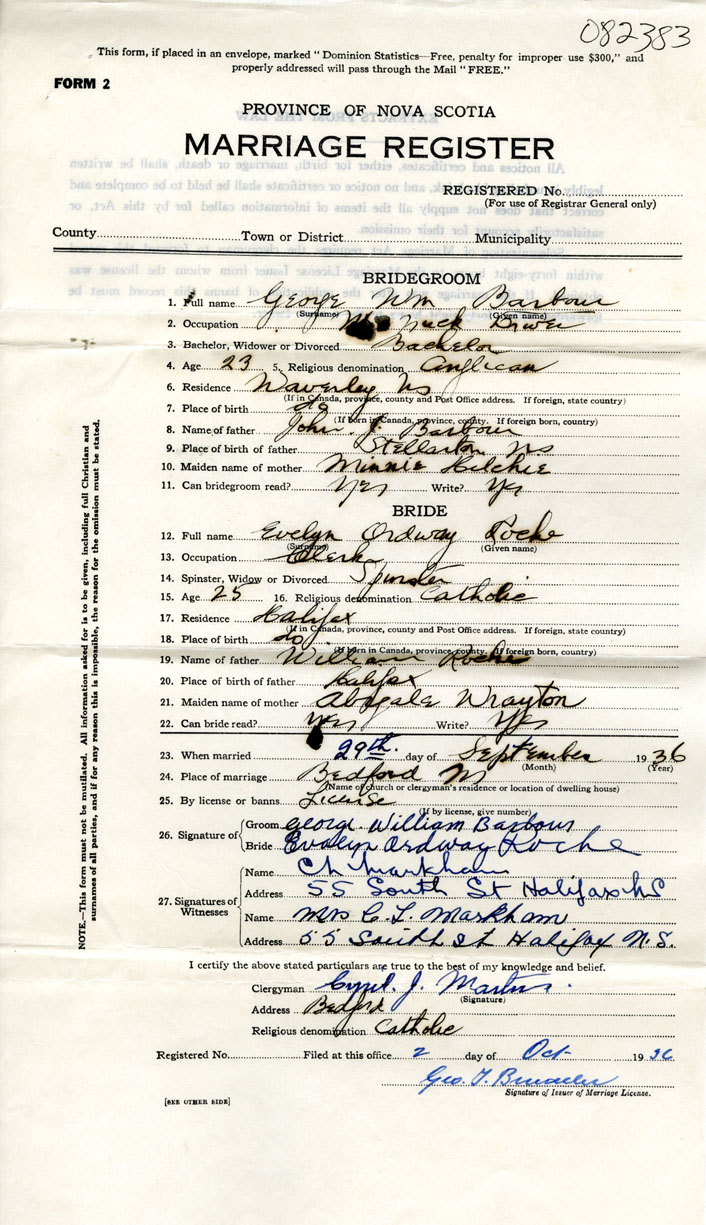 082383
This form, if placed in an envelope, marked "Dominion Statistics—Free, penalty for improper use $300," and
properly addressed will pass through the Mail "FREE."
FORM 2
PROVINCE OF NOVA SCOTIA
MARRIAGE REGISTER
REGISTERED No.
(For use of Registrar General only)
County Town or District Municipality
BRIDEGROOM
1. Full name George Wm Barbour
(Surname) (Given name)
2. Occupation Truck Driver
3. Bachelor, Widower or Divorced Bachelor
4. Age 23 5. Religious denomination Anglican
6. Residence Waverley NS
(If in Canada, province, county and Post Office address. If foreign, state country)
7. Place of birth do
(If born in Canada, province, county. If foreign born, country)
8. Name of father John J. Barbour
9. Place of birth of father Stellarton NS
10. Maiden name of mother Minnie Hilchie
11. Can bridegroom read? Yes Write? Yes
BRIDE
12. Full name Evelyn Ordway Roche
(Surname) (Given name)
13. Occupation Clerk
14. Spinster, Widow or Divorced Spinster
15. Age 25 16. Religious denomination Catholic
17. Residence Halifax
(If in Canada, province, county and Post Office address. If foreign, state country)
18. Place of birth do
(If born in Canada, province, county. If foreign born, country)
19. Name of father William Roche
20. Place of birth of father Halifax
21. Maiden name of mother Abigale Wrayton
22. Can bride read? Yes Write? Yes
23. When married 29th. day of September 1936
(Month) (Year)
24. Place of marriage Bedford NS
(Name of church or clergyman's residence or location of dwelling house)
25. By license or banns License
(If by license, give number)
26. Signature of Groom George William Barbour
Bride Evelyn Ordway Roche
27. Signatures of Witnesses Name C L Markham
Address 55 South St Halifax NS
Name Mrs C. L. Markham
Address 55 South St Halifax N.S.
I certify the above stated particulars are true to the best of my knowledge and belief.
Clergyman Cyril J. Martin
(Signature)
Address Bedford
Religious denomination Catholic
Registered No. Filed at this office 2 day of Oct 1936
Geo. T.
Signature of Issuer of Marriage License.
[SEE OTHER SIDE]
NOTE.—This form must not be mutilated. All information asked for is to be given, including full Christian and
surnames of all parties, and if for any reason this is impossible, the reason for the omission must be stated.